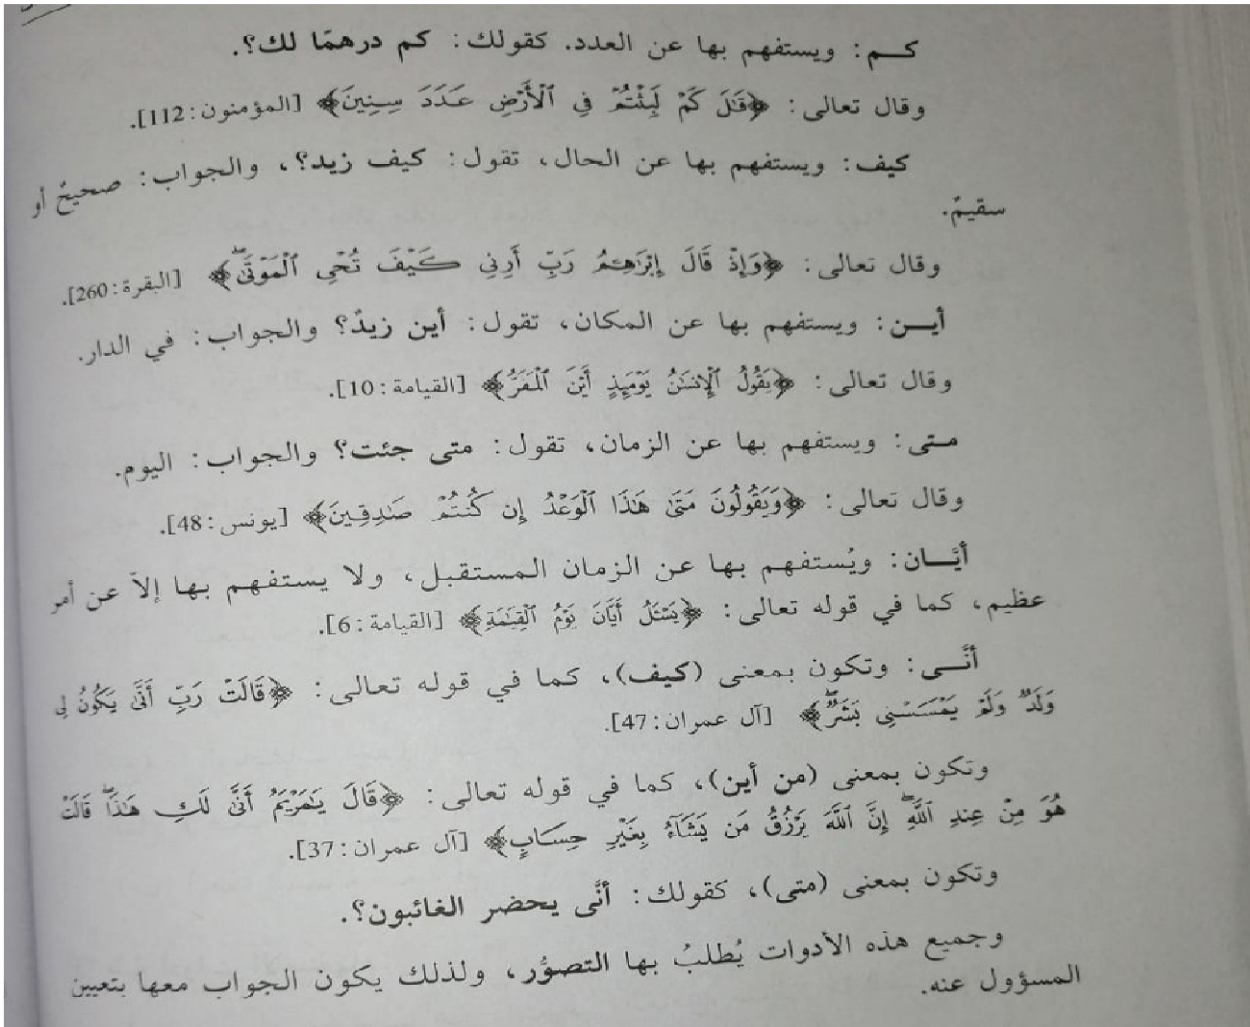 كـــم: ويستفهم بها عن العدد. كقولك: كم درهمًا لك؟.
وقال تعالى: ﴿قَٰلَ كَمْ لَبِثْتُمْ فِي ٱلْأَرْضِ عَدَدَ سِنِينَ﴾ [المؤمنون: 112].
كيف: ويستفهم بها عن الحال، تقول: كيف زيد؟، والجواب: صحيحٌ أو
سقيمٌ.
وقال تعالى: ﴿وَإِذْ قَالَ إِبْرَٰهِـۧمُ رَبِّ أَرِنِي كَيْفَ تُحْيِ ٱلْمَوْتَىٰ ۖ﴾ [البقرة: 260].
أيـــن: ويستفهم بها عن المكان، تقول: أين زيدٌ؟ والجواب: في الدار.
وقال تعالى: ﴿يَقُولُ ٱلْإِنسَٰنُ يَوْمَئِذٍ أَيْنَ ٱلْمَفَرُّ﴾ [القيامة: 10].
متى: ويستفهم بها عن الزمان، تقول: متى جئت؟ والجواب: اليوم.
وقال تعالى: ﴿وَيَقُولُونَ مَتَىٰ هَٰذَا ٱلْوَعْدُ إِن كُنتُمْ صَٰدِقِينَ﴾ [يونس: 48].
أيَّـــان: ويُستفهم بها عن الزمان المستقبل، ولا يستفهم بها إلاّ عن أمر
عظيم، كما في قوله تعالى: ﴿يَسْـَٔلُ أَيَّانَ يَوْمُ ٱلْقِيَٰمَةِ﴾ [القيامة: 6].
أنَّـــى: وتكون بمعنى (كيف)، كما في قوله تعالى: ﴿قَالَتْ رَبِّ أَنَّىٰ يَكُونُ لِي
وَلَدٌ وَلَمْ يَمْسَسْنِي بَشَرٌ ۖ﴾ [آل عمران: 47].
وتكون بمعنى (من أين)، كما في قوله تعالى: ﴿قَالَ يَٰمَرْيَمُ أَنَّىٰ لَكِ هَٰذَا ۖ قَالَتْ
هُوَ مِنْ عِندِ ٱللَّهِ ۖ إِنَّ ٱللَّهَ يَرْزُقُ مَن يَشَآءُ بِغَيْرِ حِسَابٍ﴾ [آل عمران: 37].
وتكون بمعنى (متى)، كقولك: أنَّى يحضر الغائبون؟.
وجميع هذه الأدوات يُطلبُ بها التصوُّر، ولذلك يكون الجواب معها بتعيين
المسؤول عنه.